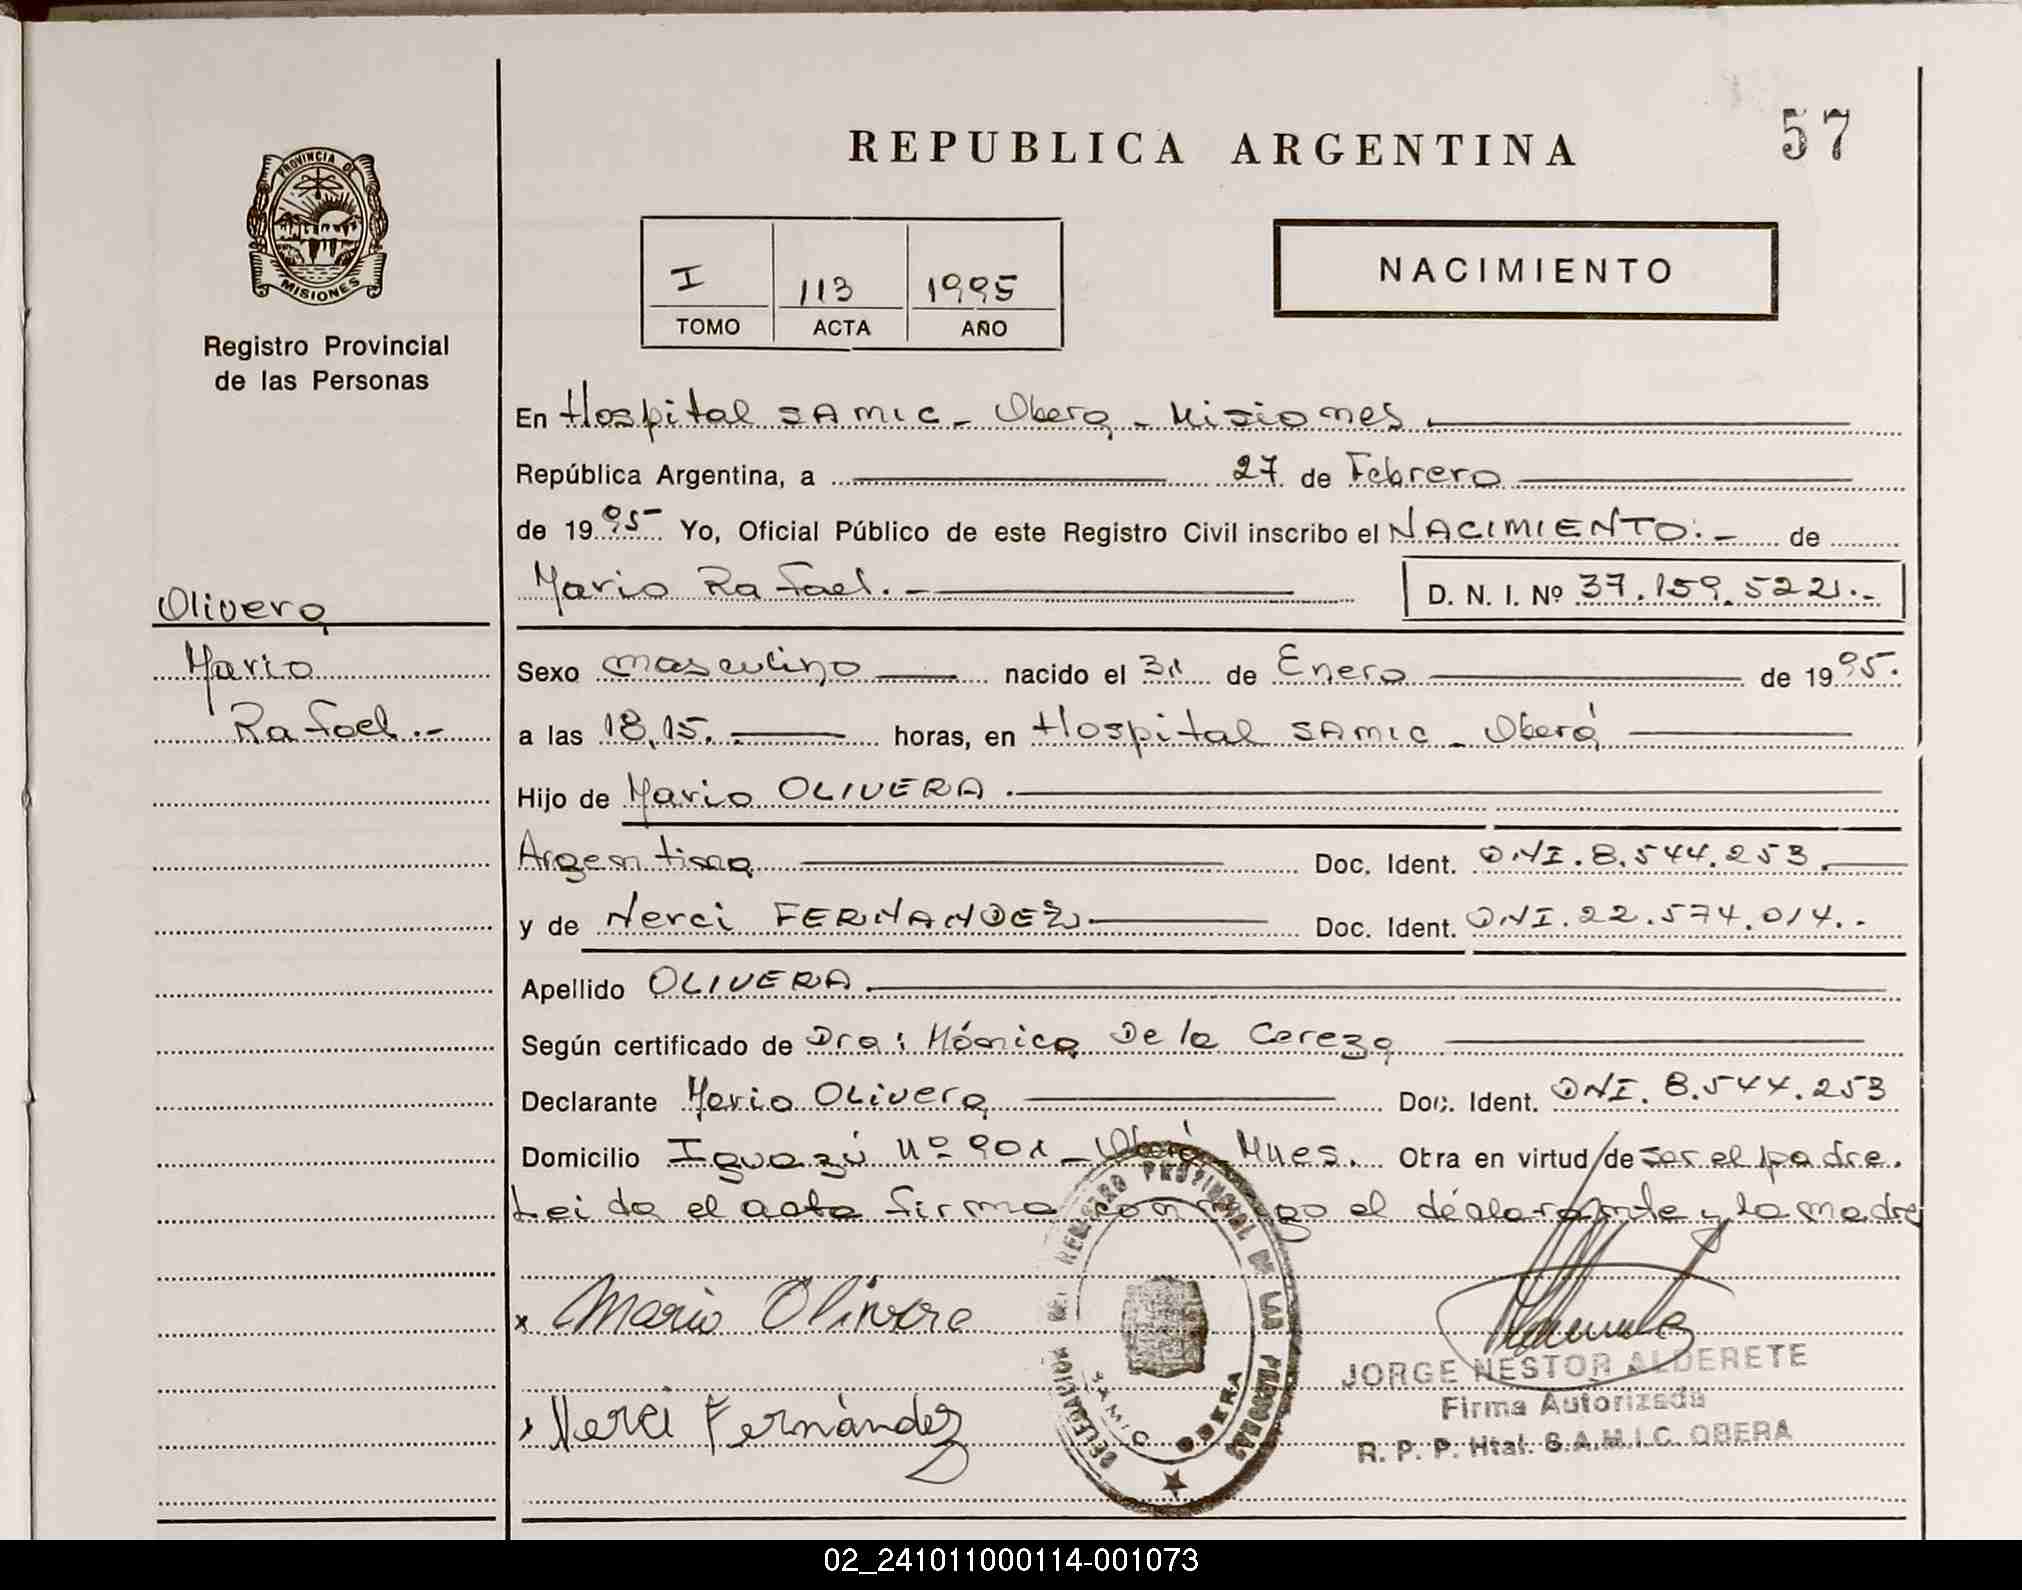 57
REPUBLICA ARGENTINA
PROVINCIA DE
MISIONES
Registro Provincial
de las Personas
I 113 1995
TOMO ACTA AÑO
NACIMIENTO
En Hospital SAMIC - Obera - Misiones
República Argentina, a 27 de Febrero
de 1995 Yo, Oficial Público de este Registro Civil inscribo el NACIMIENTO:- de
Mario Rafael.- D. N. I. Nº 37.159.522.-
Olivera
Mario
Rafael.-
Sexo masculino nacido el 31 de Enero de 1995.
a las 18,15. horas, en Hospital SAMIC - Oberá
Hijo de Mario OLIVERA.
Argentina Doc. Ident. DNI. 8.544.253.
y de Nerci FERNANDEZ Doc. Ident. DNI. 22.574.014.-
Apellido OLIVERA
Según certificado de Dra: Mónica De la Cereza
Declarante Mario Olivera Doc. Ident. DNI. 8.544.253
Domicilio Iguazú Nº 901 - Oberá Mnes. Obra en virtud de ser el padre.
Leida el acta firma conmigo el declarante y la madre
x Mario Olivera
Nerci Fernández
DELEGACION DEL REGISTRO PROVINCIAL DE LAS PERSONAS
SAMIC OBERA
JORGE NESTOR ALDERETE
Firma Autorizada
R. P. P. Htal. S.A.M.I.C. OBERA
02_241011000114-001073